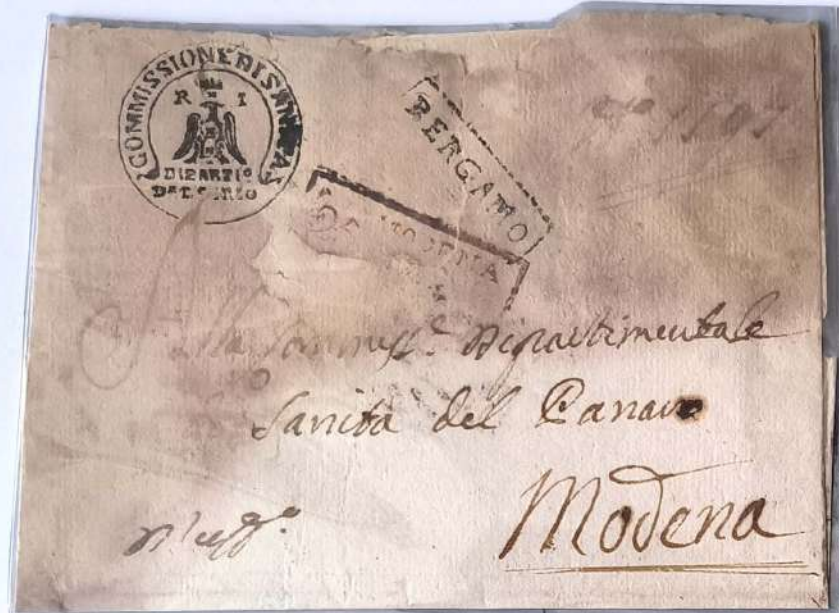 COMMISSIONE DI SANITA
R I
DIPARTIº
DEL SERIO
BERGAMO
MODENA
Alla Commissᵉ Dipartimentale
Sanità del Panaro
Modena